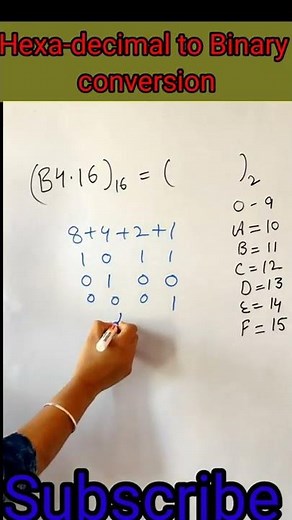 Hexa-decimal to Binary
conversion
(B4.16)₁₆ = (          )₂
8+4+2+1
1 0 1 1
0 1 0 0
0 0 0 1
0-9
A=10
B=11
C=12
D=13
E=14
F=15
Subscribe